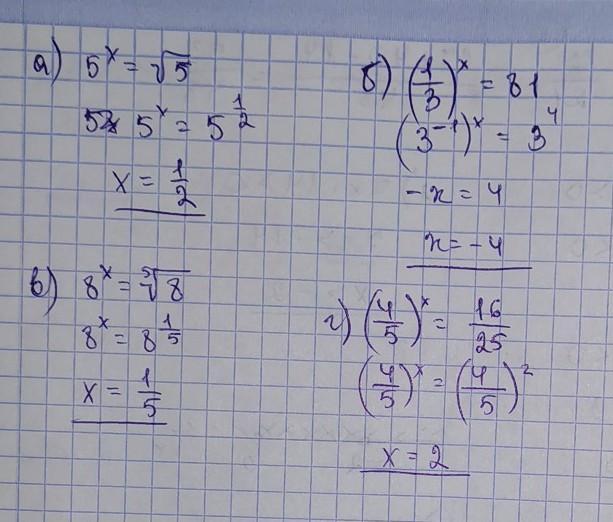 а) 5^x = √5
5^x = 5^(1/2)
x = 1/2
б) (1/3)^x = 81
(3^-1)^x = 3^4
-x = 4
x = -4
в) 8^x = ⁵√8
8^x = 8^(1/5)
x = 1/5
г) (4/5)^x = 16/25
(4/5)^x = (4/5)^2
x = 2